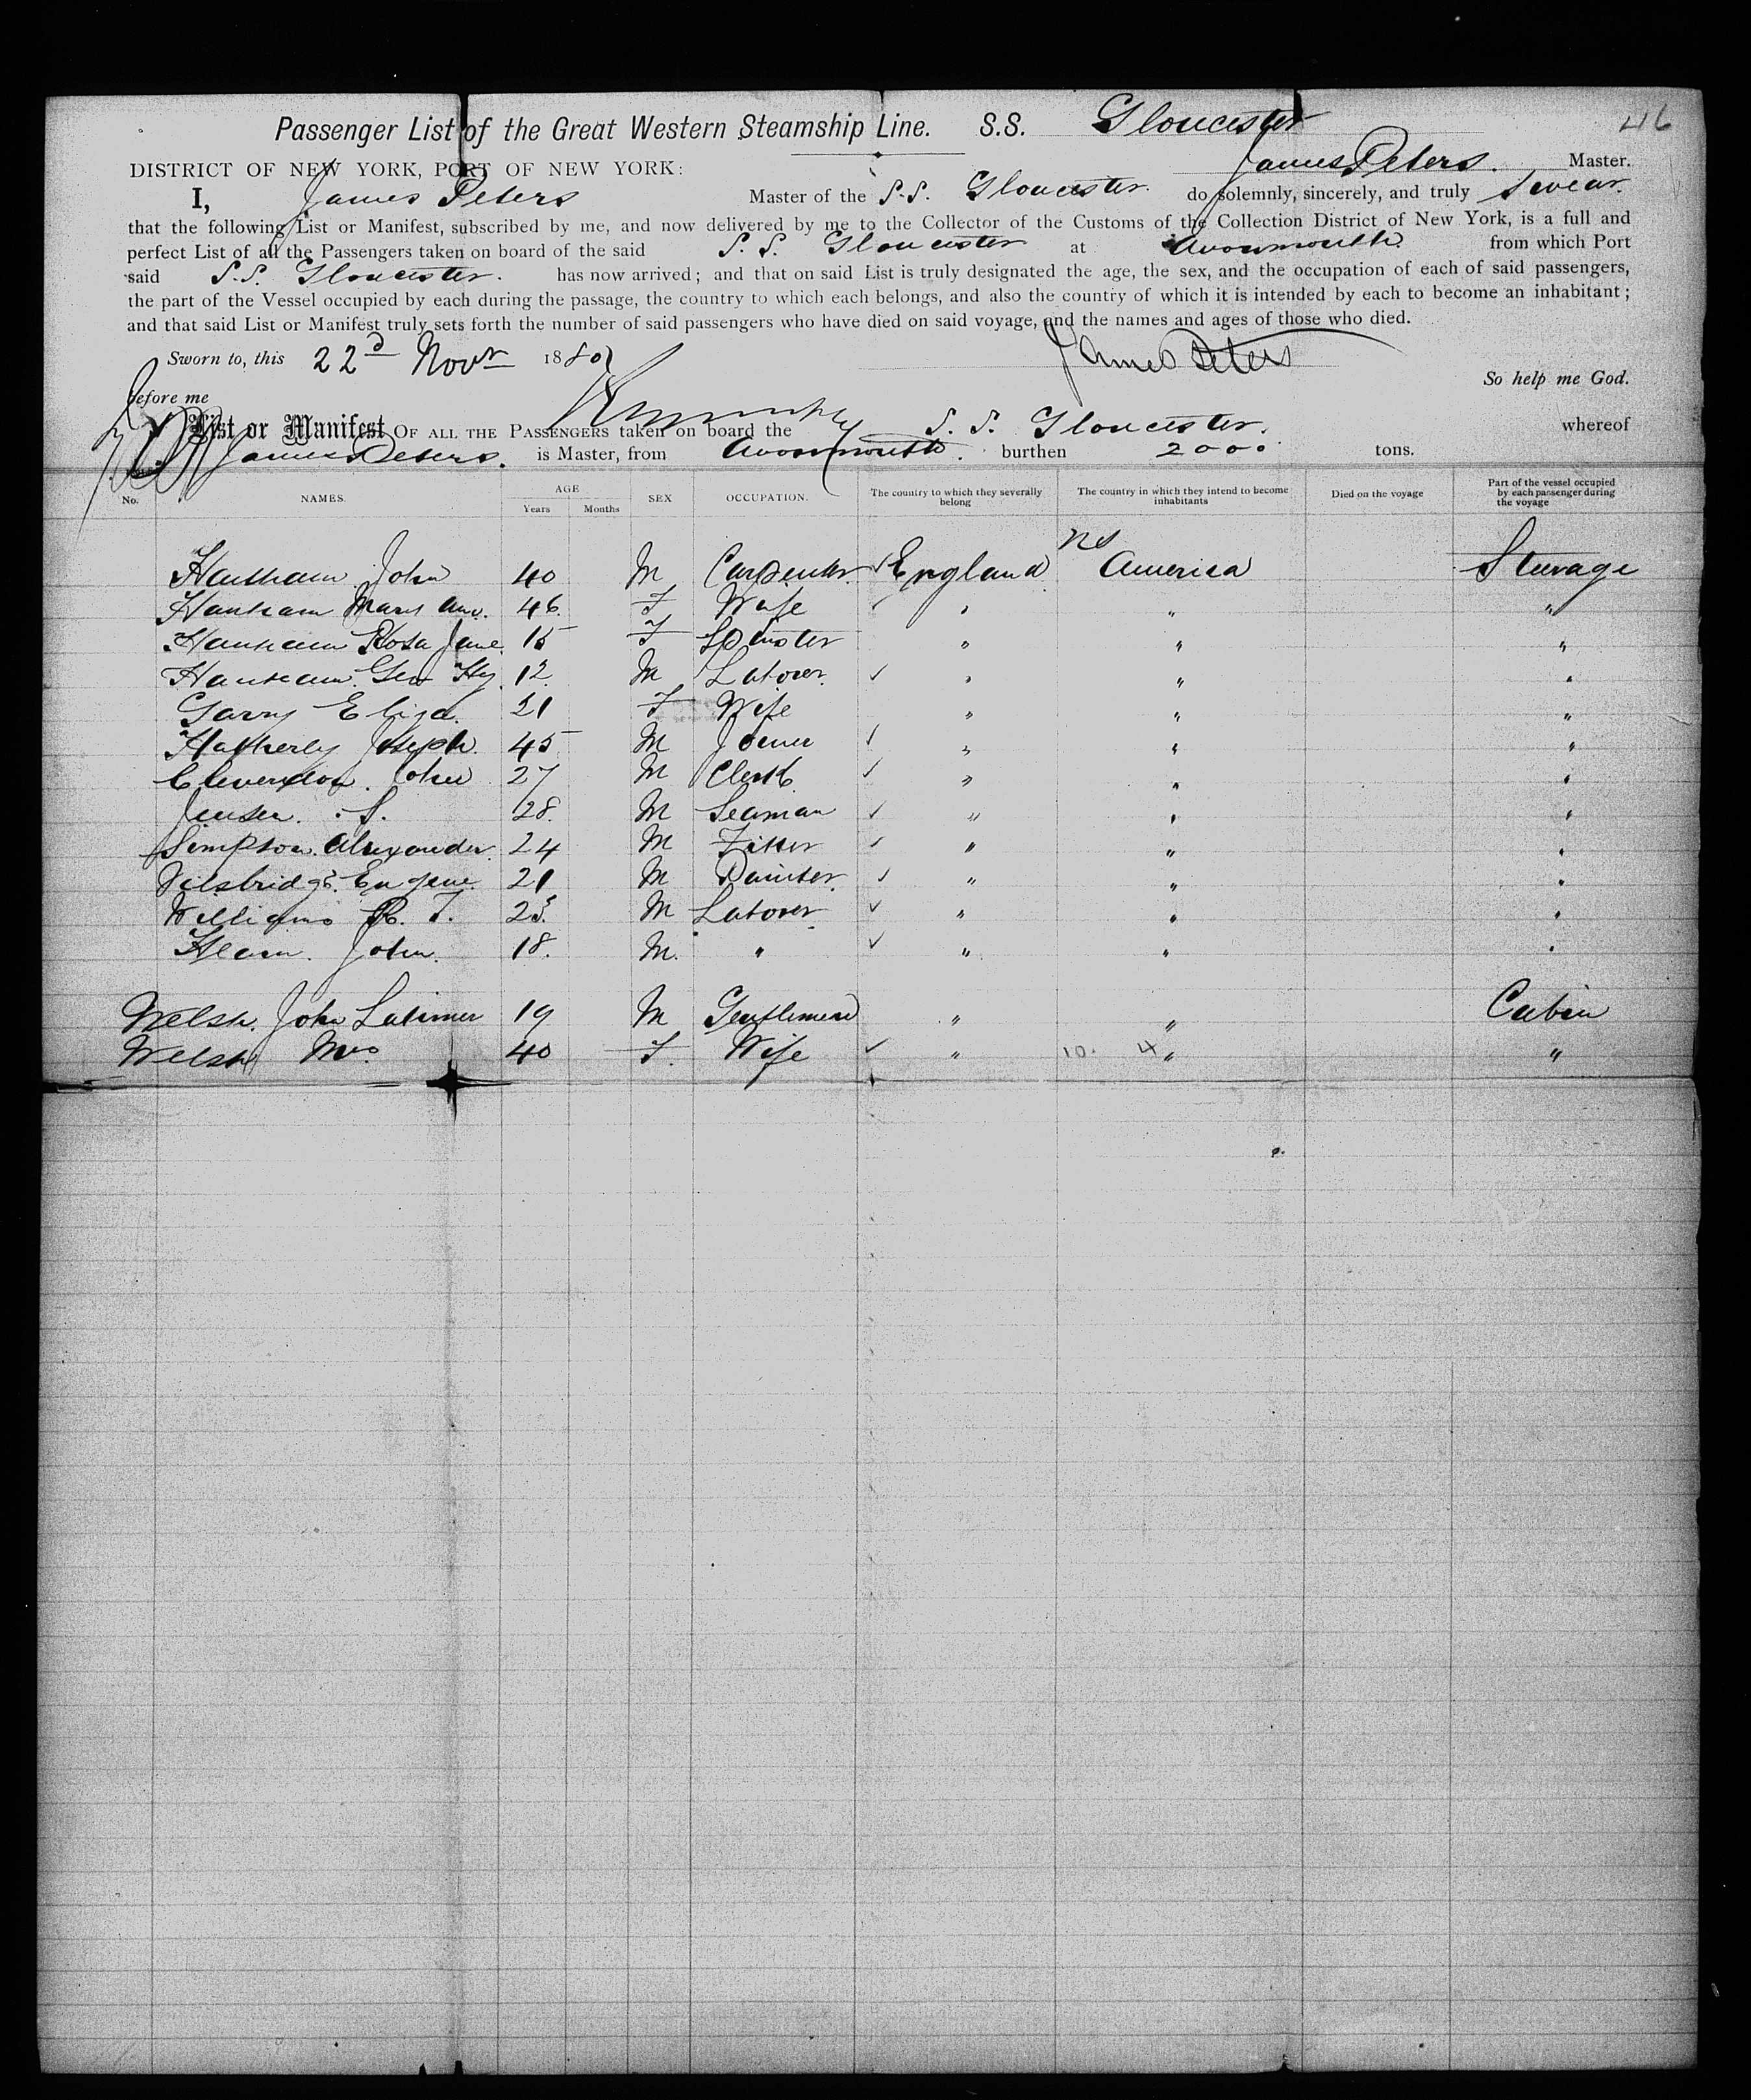 46
Passenger List of the Great Western Steamship Line. S.S. Gloucester
James Peters. Master.
DISTRICT OF NEW YORK, PORT OF NEW YORK:
I, James Peters Master of the S.S. Gloucester. do solemnly, sincerely, and truly swear.
that the following List or Manifest, subscribed by me, and now delivered by me to the Collector of the Customs of the Collection District of New York, is a full and
perfect List of all the Passengers taken on board of the said S.S. Gloucester at Avonmouth from which Port
said S.S. Gloucester. has now arrived; and that on said List is truly designated the age, the sex, and the occupation of each of said passengers,
the part of the Vessel occupied by each during the passage, the country to which each belongs, and also the country of which it is intended by each to become an inhabitant;
and that said List or Manifest truly sets forth the number of said passengers who have died on said voyage, and the names and ages of those who died.
Sworn to, this 22d Novr 1880 James Peters
So help me God.
Before me
List or Manifest OF ALL THE PASSENGERS taken on board the S.S. Gloucester. whereof
James Peters. is Master, from Avonmouth. burthen 2000 tons.
No. NAMES. AGE Years Months SEX OCCUPATION. The country to which they severally belong The country in which they intend to become inhabitants Died on the voyage Part of the vessel occupied by each passenger during the voyage
Hanham John 40 M Carpenter England America Steerage
Hanham Mary Ann. 46 F Wife " " "
Hanham Rosa Jane 15 F Spinster " " "
Hanham Geo Hy 12 M Laborer " " "
Garry Eliza. 21 F Wife " " "
Hatherly Joseph 45 M Joiner " " "
Cleverdon. John 27 M Clerk " " "
Jensen. S. 28. M Seaman " " "
Simpson. Alexander 24 M Fitter " " "
Eugene 21 M Painter " " "
Williams R. T. M Laborer " " "
Hearn. John. 18. M. " " " "
Welsh. John Latimer 19 M Gentleman " " Cabin
Welsh Mrs 40 F. Wife " 10. 4 " "